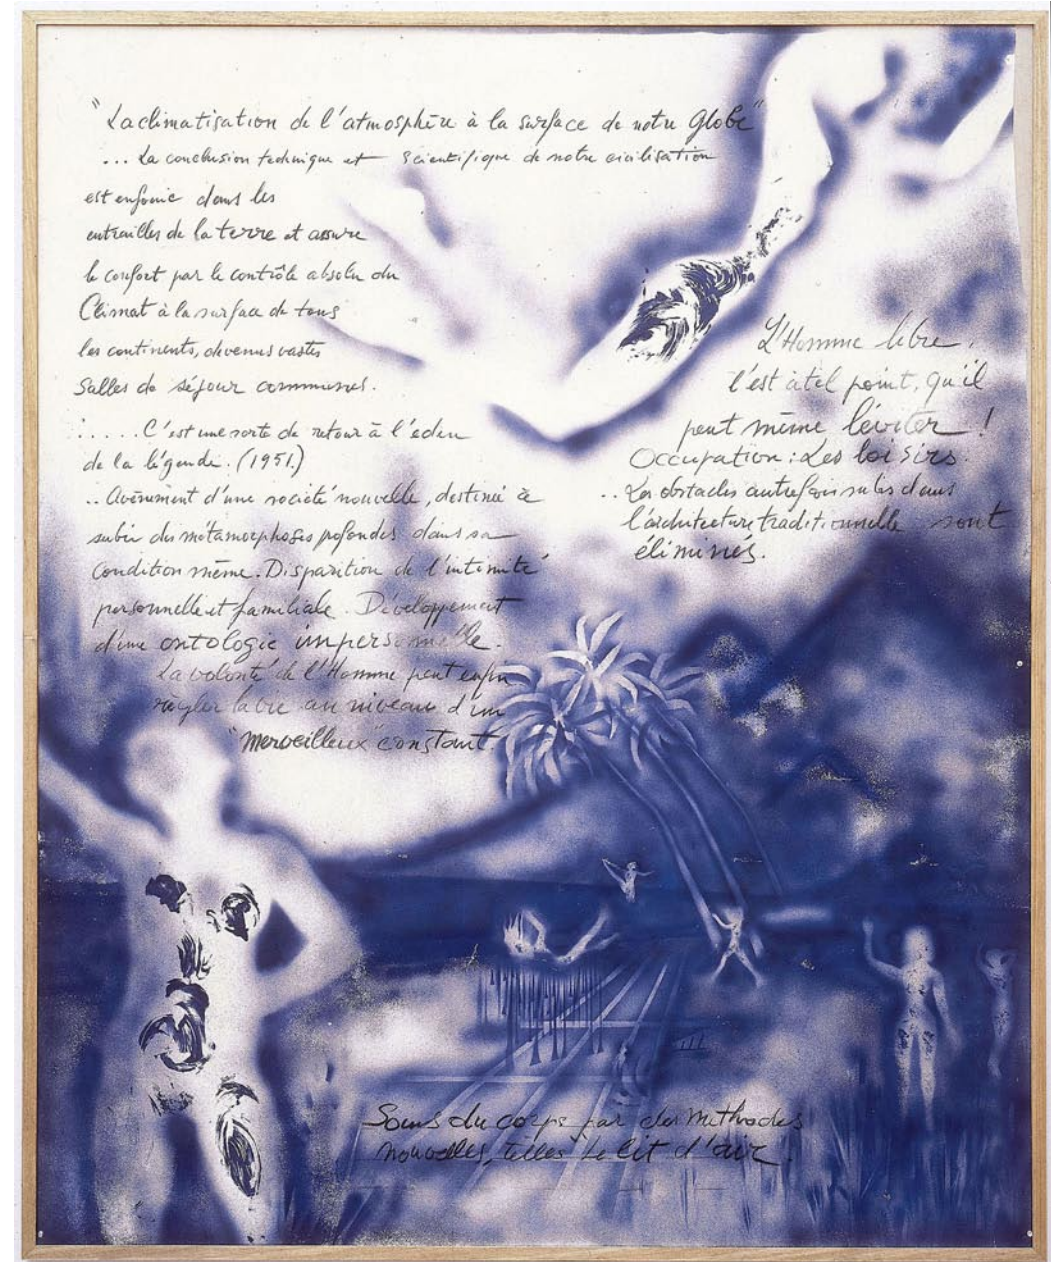 "La climatisation de l'atmosphère à la surface de notre Globe"
... La conclusion technique et scientifique de notre civilisation
est enfouie dans les
entrailles de la terre et assure
le confort par le contrôle absolu du
Climat à la surface de tous
les continents, devenus vastes
Salles de séjour communes.
..... C'est une sorte de retour à l'eden
de la légende. (1951.)
.. Avènement d'une société nouvelle, destinée à
subir des métamorphoses profondes dans sa
condition même. Disparition de l'intimité
personnelle et familiale. Développement
d'une ontologie impersonnelle.
La volonté de l'Homme peut enfin
règler la vie au niveau d'un
"merveilleux" constant.
L'Homme libre,
l'est à tel point, qu'il
peut même léviter !
Occupation : Les loisirs.
.. Les obstacles autrefois subis dans
l'architecture traditionnelle sont
éliminés.
Soins du corps par des méthodes
nouvelles, telles le lit d'air.